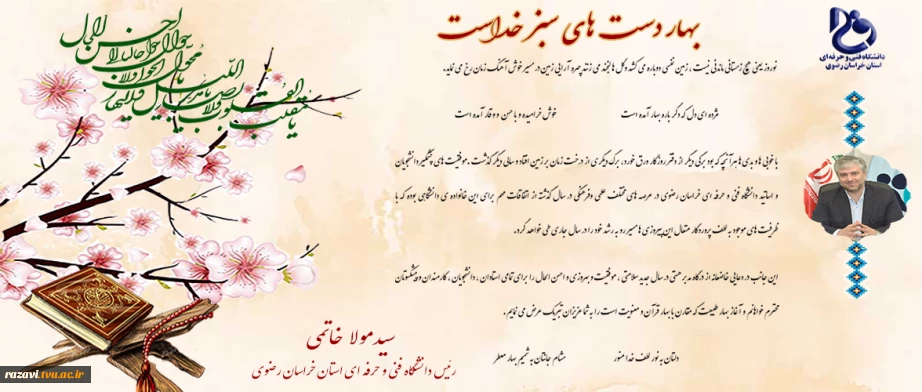 بهار دست های سبز خداست
دانشگاه فنی و حرفه ای
استان خراسان رضوی
نوروز یعنی هیچ زمستانی ماندنی نیست ، زمین نفسی دوباره می کشد و گل ها لبخند می زنند چهره آرایی زمین در مسیر خوش آهنگ زمان رخ می نماید.
مژده ای دل که دگر باره بهار آمده است
خوش خرامیده و با حسن و وقار آمده است
با خوبی ها و بدی ها هر آنچه که بود برگی دیگر از دفتر روزگار ورق خورد، برگ دیگری از درخت زمان بر زمین افتاد و سالی دیگر گذشت. موفقیت های چشمگیر دانشجویان
و اساتید دانشگاه فنی و حرفه ای خراسان رضوی در عرصه های مختلف علمی و فرهنگی در سال گذشته از اتفاقات مهم برای این خانواده ی دانشگاهی بوده که با
ظرفیت های موجود به لطف پروردگار متعال این پیروزی ها مسیر رو به رشد خود را در سال جاری طی خواهد کرد.
این جانب در دعایی خاضعانه از درگاه مدبر هستی در سال جدید سلامتی ، موفقیت و بهروزی و احسن الحال را برای تمامی استادان ، دانشجویان ، کارمندان و پیشکسوتان
محترم خواهانم و آغاز بهار طبیعت که مقارن با بهار قرآن و معنویت است را به شما عزیزان تبریک عرض می نمایم .
دلتان به نور لطف خدا منور
مشام جانتان به شمیم بهار معطر
سید مولا خاتمی
رئیس دانشگاه فنی و حرفه ای استان خراسان رضوی
razavi.tvu.ac.ir